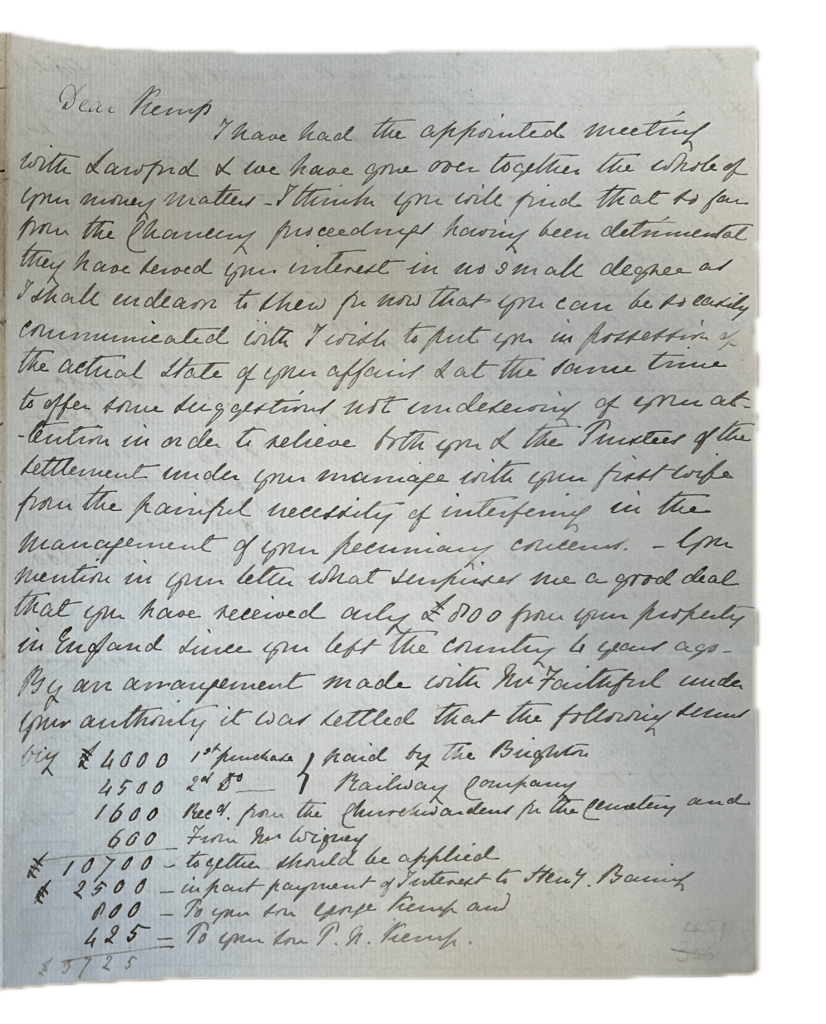 Dear Kemp
I have had the appointed meeting
with Lawford & we have gone over together the whole of
your money matters - I think you will find that so far
from the Chancery proceedings having been detrimental
they have served your interest in no small degree as
I shall endeavor to shew for now that you can be so easily
communicated with I wish to put you in possession of
the actual State of your affairs & at the same time
to offer some suggestions not undeserving of your at-
-tention in order to relieve both you & the Trustees of the
settlement under your marriage with your first wife
from the painful necessity of interfering in the
management of your pecuniary concerns. - You
mention in your letter what surprises me a good deal
that you have received only £800 from your property
in England since you left the country 4 years ago -
By an arrangement made with Mr Faithful under
your authority it was settled that the following sums
viz £4000 1st purchase } paid by the Brighton
4500 2d Do — } Railway Company
1600 Recd. from the Churchwardens for the Cemetery and
600 - From Mr Wigney
£10700 - together should be applied
£2500 - in part payment of Interest to Heny. Baring
800 - To your son George Kemp and
425 - To your son T. R. Kemp.
£3725